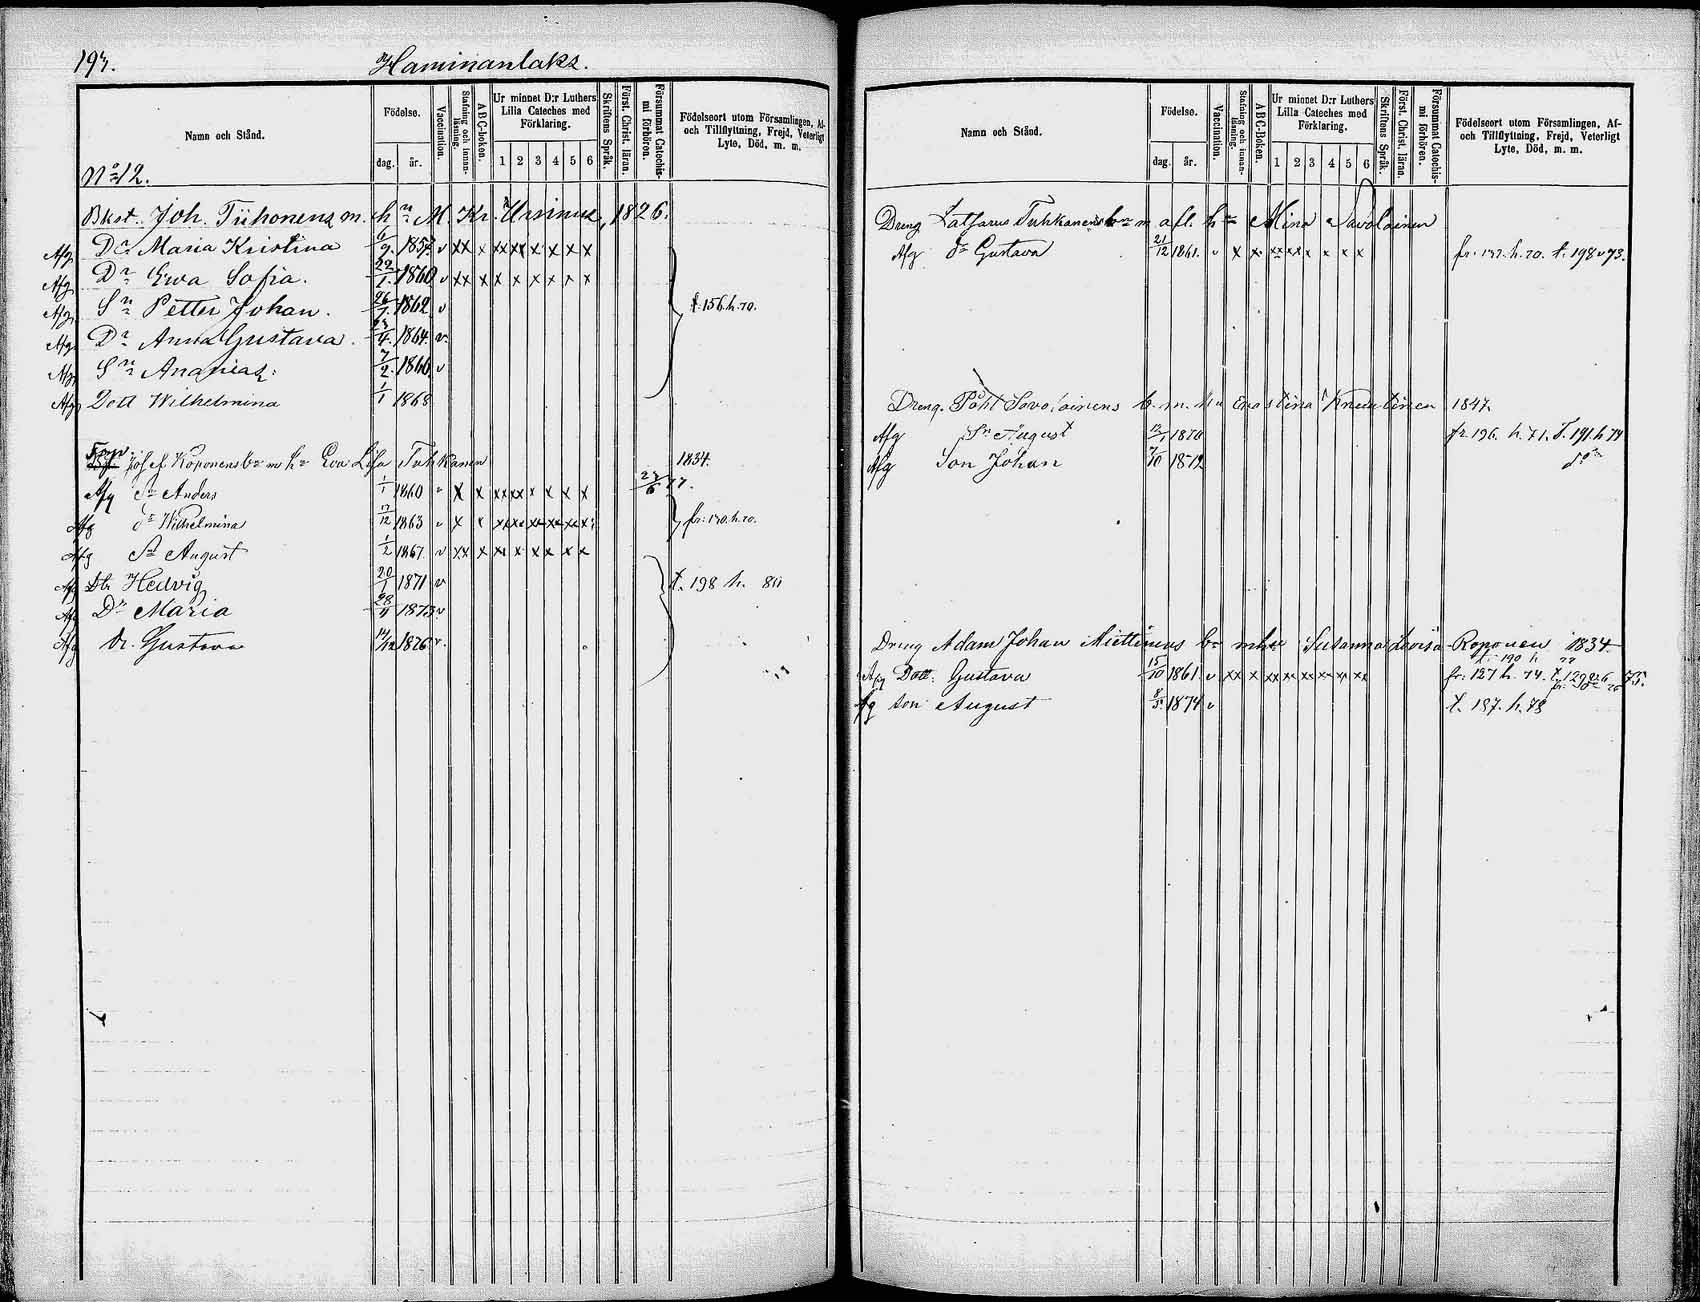 193. Haminanlaks.
Namn och Stånd.
Födelse.
dag. år.
Vaccination.
Stafning och innan-läsning.
ABC-boken.
Ur minnet D:r Luthers Lilla Cateches med Förklaring.
1 2 3 4 5 6
Skriftens Språk.
Först. Christ. läran.
Försummat Catechis-mi förhören.
Födelseort utom Församlingen, Af- och Tillflyttning, Frejd, Veterligt Lyte, Död, m. m.
No 12.
Bkst. Joh. Tiihonens m. hu M. Kr. Ursinus, 1826.
Afg Dr Maria Kristina 6/9 1857 v xx x xx xx x x x x
Afg Dr Ewa Sofia. 22/1 1860 v xx x x x x x x x
Afg Sn Petter Johan. 26/7 1862 v t. 156. h. 70.
Afg Dr Anna Gustava. 23/4 1864 v
Afg Sn Ananias 7/2 1866 v
Afg Dott Wilhelmina 1/1 1868
Josef Koponens br m hu Eva Lisa Tuhkanen 1834.
Afg Sn Anders 1/1 1860 x x xx xx x x x x 27/6 77.
Afg dr Wilhelmina 17/12 1863 x x fr: 170. h. 70.
Afg Sn August 1/2 1867 v xx x x x x x x x
Afg Dtr Hedvig 20/1 1871 v t. 198 h. 80
Afg Dr Maria 28/11 1873 v
Afg dr. Gustava 14/12 1876 v.
Namn och Stånd.
Födelse.
dag. år.
Vaccination.
Stafning och innan-läsning.
ABC-Boken.
Ur minnet D:r Luthers Lilla Cateches med Förklaring.
1 2 3 4 5 6
Skriftens Språk.
Först. Christ. läran.
Försummat Catechis-mi förhören.
Födelseort utom Församlingen, Af- och Tillflyttning, Frejd, Veterligt Lyte, Död, m. m.
Dreng Latsarus Tuhkanens br m afl. hu Mina Savolainen
Afg dr Gustava 21/12 1861. v x x xx xx x x x x fr. 197. h. 70. t. 198 v 73.
Dreng. Påhl Savolainens b. m. hu Eva Stina Knuutinen 1847.
Afg Sn August 12/1 1870 fr. 196. h. 71. t. 191. h 74
Afg Son Johan 7/10 1872 do
Dreng Adam Johan Miettinens br m hu Susanna Lovisa Roponen 1834
Afg Dott: Gustava 15/10 1861. v xx x xx xx xx xx xx xx fr: 127 h. 74.
Afg son August 8/5 1874 v t. 187. h. 78